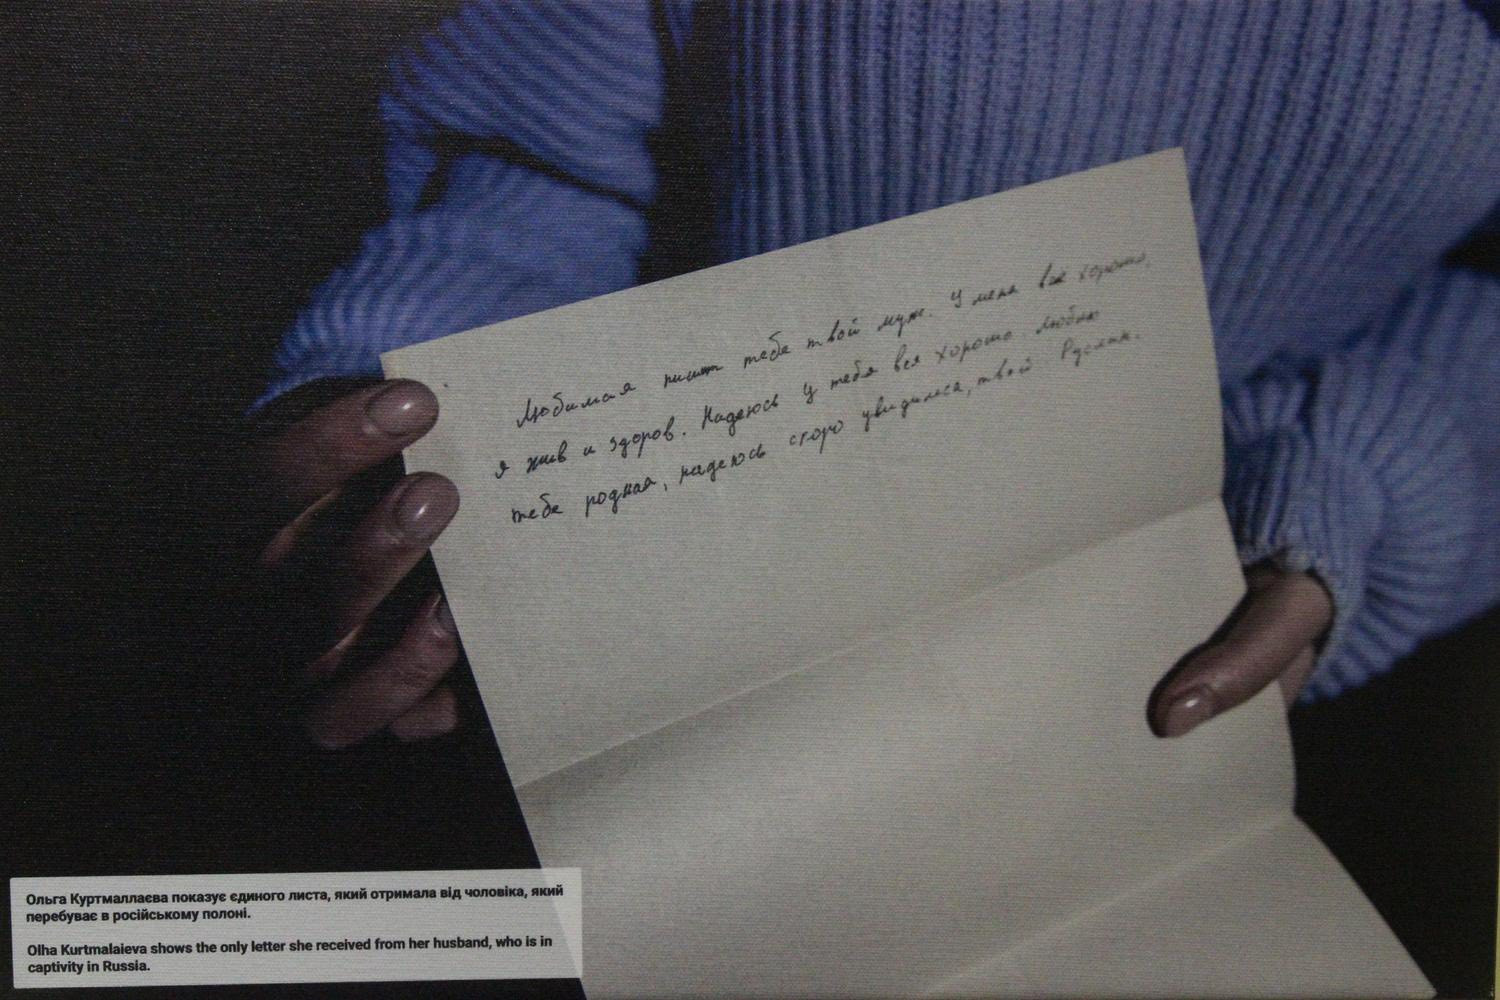 Любимая пишет тебе твой муж. У меня всё хорошо,
я жив и здоров. Надеюсь у тебя все хорошо. Люблю
тебе родная, надеюсь скоро увидимся, твой Руслан.
Ольга Куртмаллаєва показує єдиного листа, який отримала від чоловіка, який
перебуває в російському полоні.
Olha Kurtmalaieva shows the only letter she received from her husband, who is in
captivity in Russia.